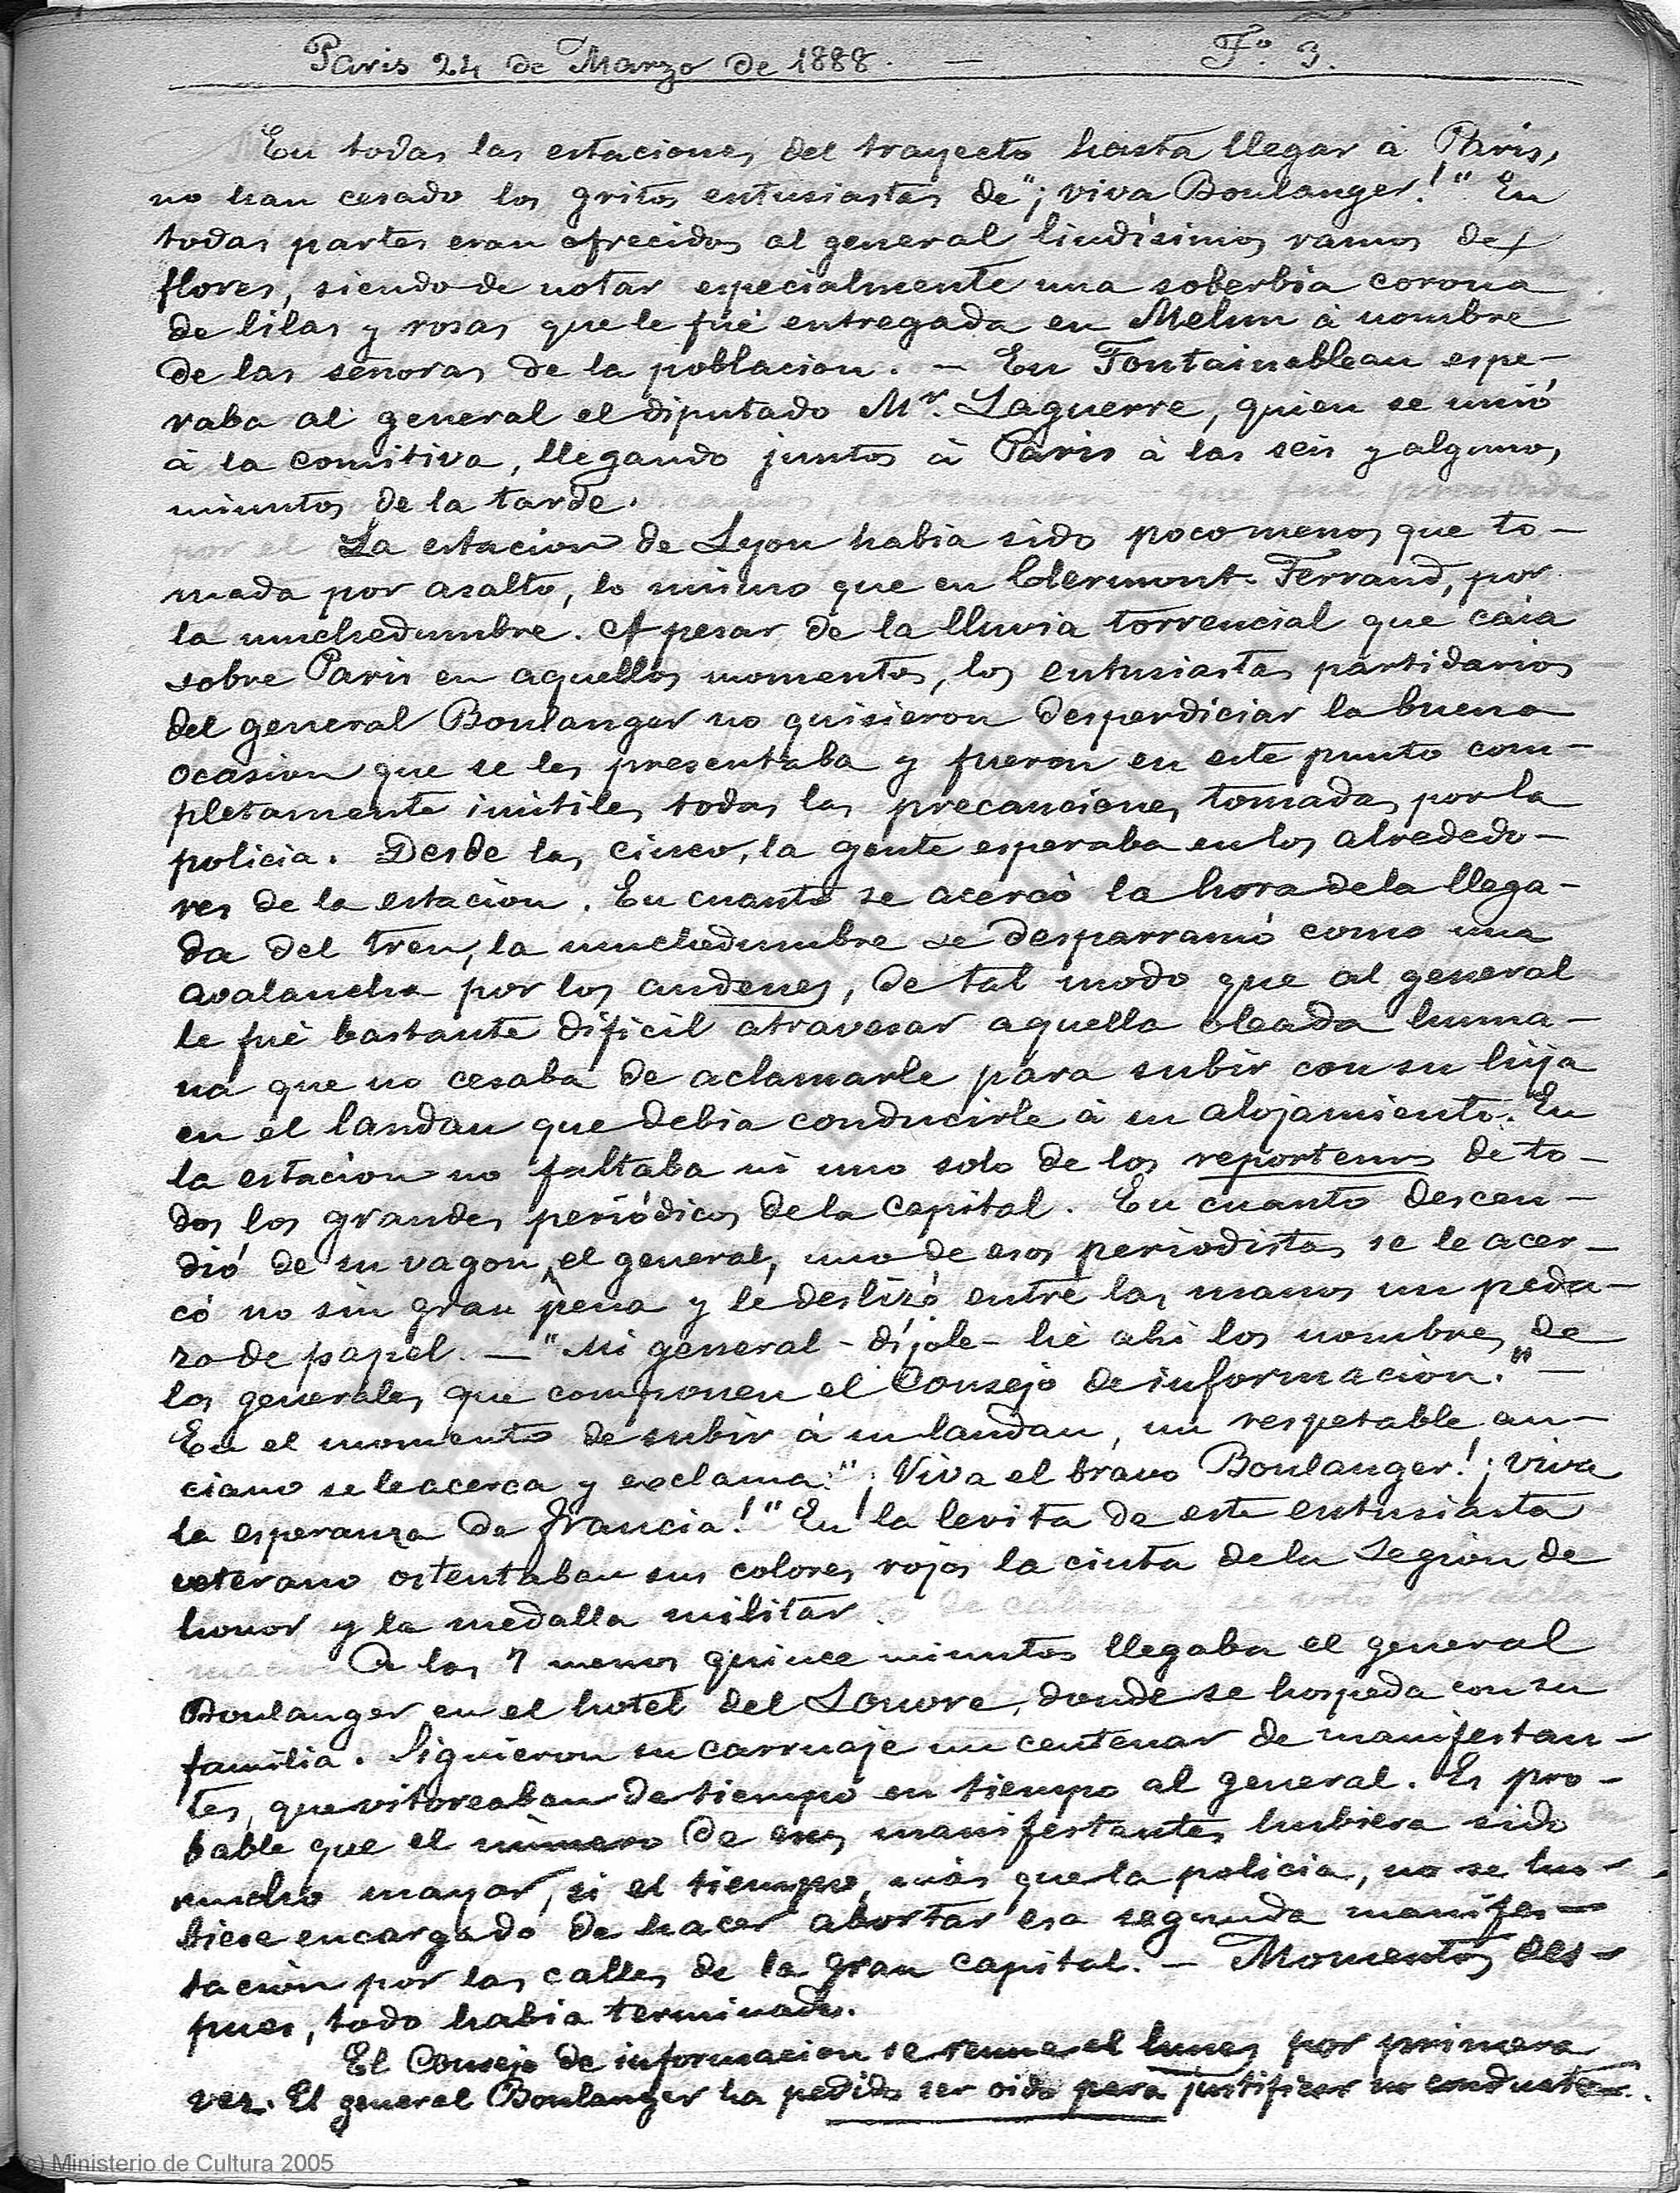 Paris 24 de Marzo de 1888. — Fº 3.
En todas las estaciones del trayecto hasta llegar á Paris,
no han cesado los gritos entusiastas de "¡viva Boulanger!" En
todas partes eran ofrecidos al general lindísimos ramos de
flores, siendo de notar especialmente una soberbia corona
de lilas y rosas que le fué entregada en Melun á nombre
de las señoras de la poblacion. — En Fontainebleau espe-
raba al general el diputado Mr. Laguerre, quien se unió
á la comitiva, llegando juntos á Paris á las seis y algunos
minutos de la tarde.
La estacion de Lyon habia sido poco menos que to-
mada por asalto, lo mismo que en Clermont-Ferrand, por
la muchedumbre. A pesar de la lluvia torrencial que caia
sobre Paris en aquellos momentos, los entusiastas partidarios
del general Boulanger no quisieron desperdiciar la buena
ocasion que se les presentaba y fueron en este punto com-
pletamente inútiles todas las precauciones tomadas por la
policia. Desde las cinco, la gente esperaba en los alrededo-
res de la estacion. En cuanto se acercó la hora de la llega-
da del tren, la muchedumbre se desparramó como una
avalancha por los andenes, de tal modo que al general
le fué bastante dificil atravesar aquella oleada huma-
na que no cesaba de aclamarle para subir con su hija
en el landau que debia conducirle á su alojamiento. En
la estacion no faltaba ni uno solo de los reporteros de to-
dos los grandes periódicos de la capital. En cuanto descen-
dió de su vagon el general, uno de esos periodistas se le acer-
có no sin gran pena y le deslizó entre las manos un peda-
zo de papel. — "Mi general - díjole - hé ahi los nombres de
los generales que componen el Consejo de informacion." —
En el momento de subir á su landau, un respetable an-
ciano se le acerca y exclama: "¡Viva el bravo Boulanger! ¡Viva
la esperanza de Francia!" En la levita de este entusiasta
veterano ostentaban sus colores rojos la cinta de la Legion de
honor y la medalla militar.
A las 7 menos quince minutos llegaba el general
Boulanger en el hotel del Louvre, donde se hospeda con su
familia. Siguieron su carruaje un centenar de manifestan-
tes, que vitoreaban de tiempo en tiempo al general. Es pro-
bable que el número de esos manifestantes hubiera sido
mucho mayor, si el tiempo, más que la policia, no se hu-
biese encargado de hacer abortar esa segunda manifes-
tacion por las calles de la gran capital. — Momentos des-
pues, todo habia terminado.
El Consejo de informacion se reune el lunes por primera
vez. El general Boulanger ha pedido ser oido para justificar su conducta.
(c) Ministerio de Cultura 2005